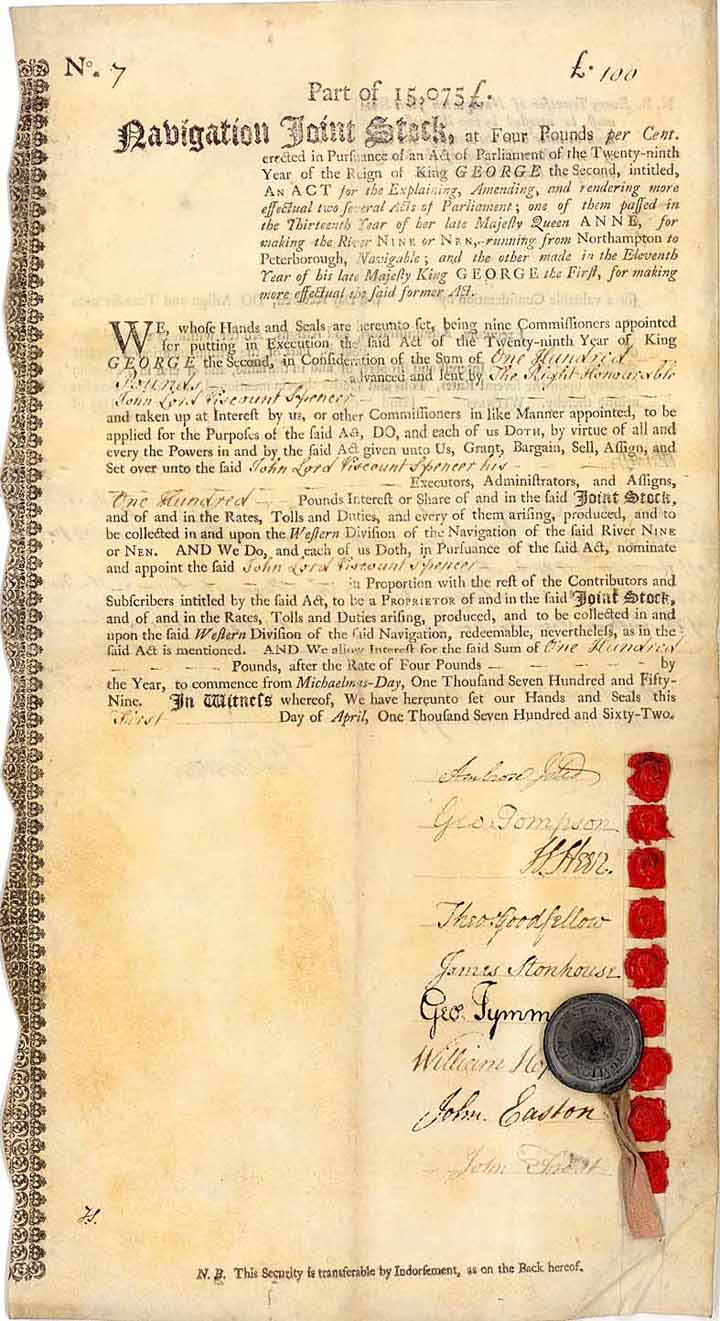 No. 7 £. 100
Part of 15,075£.
Navigation Joint Stock, at Four Pounds per Cent.
erected in Purſuance of an Act of Parliament of the Twenty-ninth
Year of the Reign of King GEORGE the Second, intitled,
AN ACT for the Explaining, Amending, and rendering more
effectual two ſeveral Acts of Parliament; one of them paſſed in
the Thirteenth Year of her late Majeſty Queen ANNE, for
making the River NINE or NEN, running from Northampton to
Peterborough, Navigable; and the other made in the Eleventh
Year of his late Majeſty King GEORGE the Firſt, for making
more effectual the ſaid former Act.
WE, whoſe Hands and Seals are hereunto ſet, being nine Commiſſioners appointed
for putting in Execution the ſaid Act of the Twenty-ninth Year of King
GEORGE the Second, in Conſideration of the Sum of One Hundred
Pounds advanced and lent by The Right Honourable
John Lord Viscount Spencer
and taken up at Intereſt by us, or other Commiſſioners in like Manner appointed, to be
applied for the Purpoſes of the ſaid Act, DO, and each of us DOTH, by virtue of all and
every the Powers in and by the ſaid Act given unto Us, Grant, Bargain, Sell, Aſſign, and
Set over unto the ſaid John Lord Viscount Spencer his
Executors, Adminiſtrators, and Aſſigns,
One Hundred Pounds Intereſt or Share of and in the ſaid Joint Stock,
and of and in the Rates, Tolls and Duties, and every of them ariſing, produced, and to
be collected in and upon the Weſtern Diviſion of the Navigation of the ſaid River NINE
or NEN. AND We Do, and each of us Doth, in Purſuance of the ſaid Act, nominate
and appoint the ſaid John Lord Viscount Spencer
in Proportion with the reſt of the Contributors and
Subſcribers intitled by the ſaid Act, to be a PROPRIETOR of and in the ſaid Joint Stock,
and of and in the Rates, Tolls and Duties ariſing, produced, and to be collected in and
upon the ſaid Weſtern Diviſion of the ſaid Navigation, redeemable, nevertheleſs, as in the
ſaid Act is mentioned. AND We allow Intereſt for the ſaid Sum of One Hundred
Pounds, after the Rate of Four Pounds by
the Year, to commence from Michaelmas-Day, One Thouſand Seven Hundred and Fifty-
Nine. In Witneſs whereof, We have hereunto ſet our Hands and Seals this
First Day of April, One Thouſand Seven Hundred and Sixty-Two.
Ambrose
Geo. Tompson
Theo. Goodfellow
James Stonhouse
Geo. Tymm
William
John. Easton
John
N. B. This Security is transferable by Indorſement, as on the Back hereof.